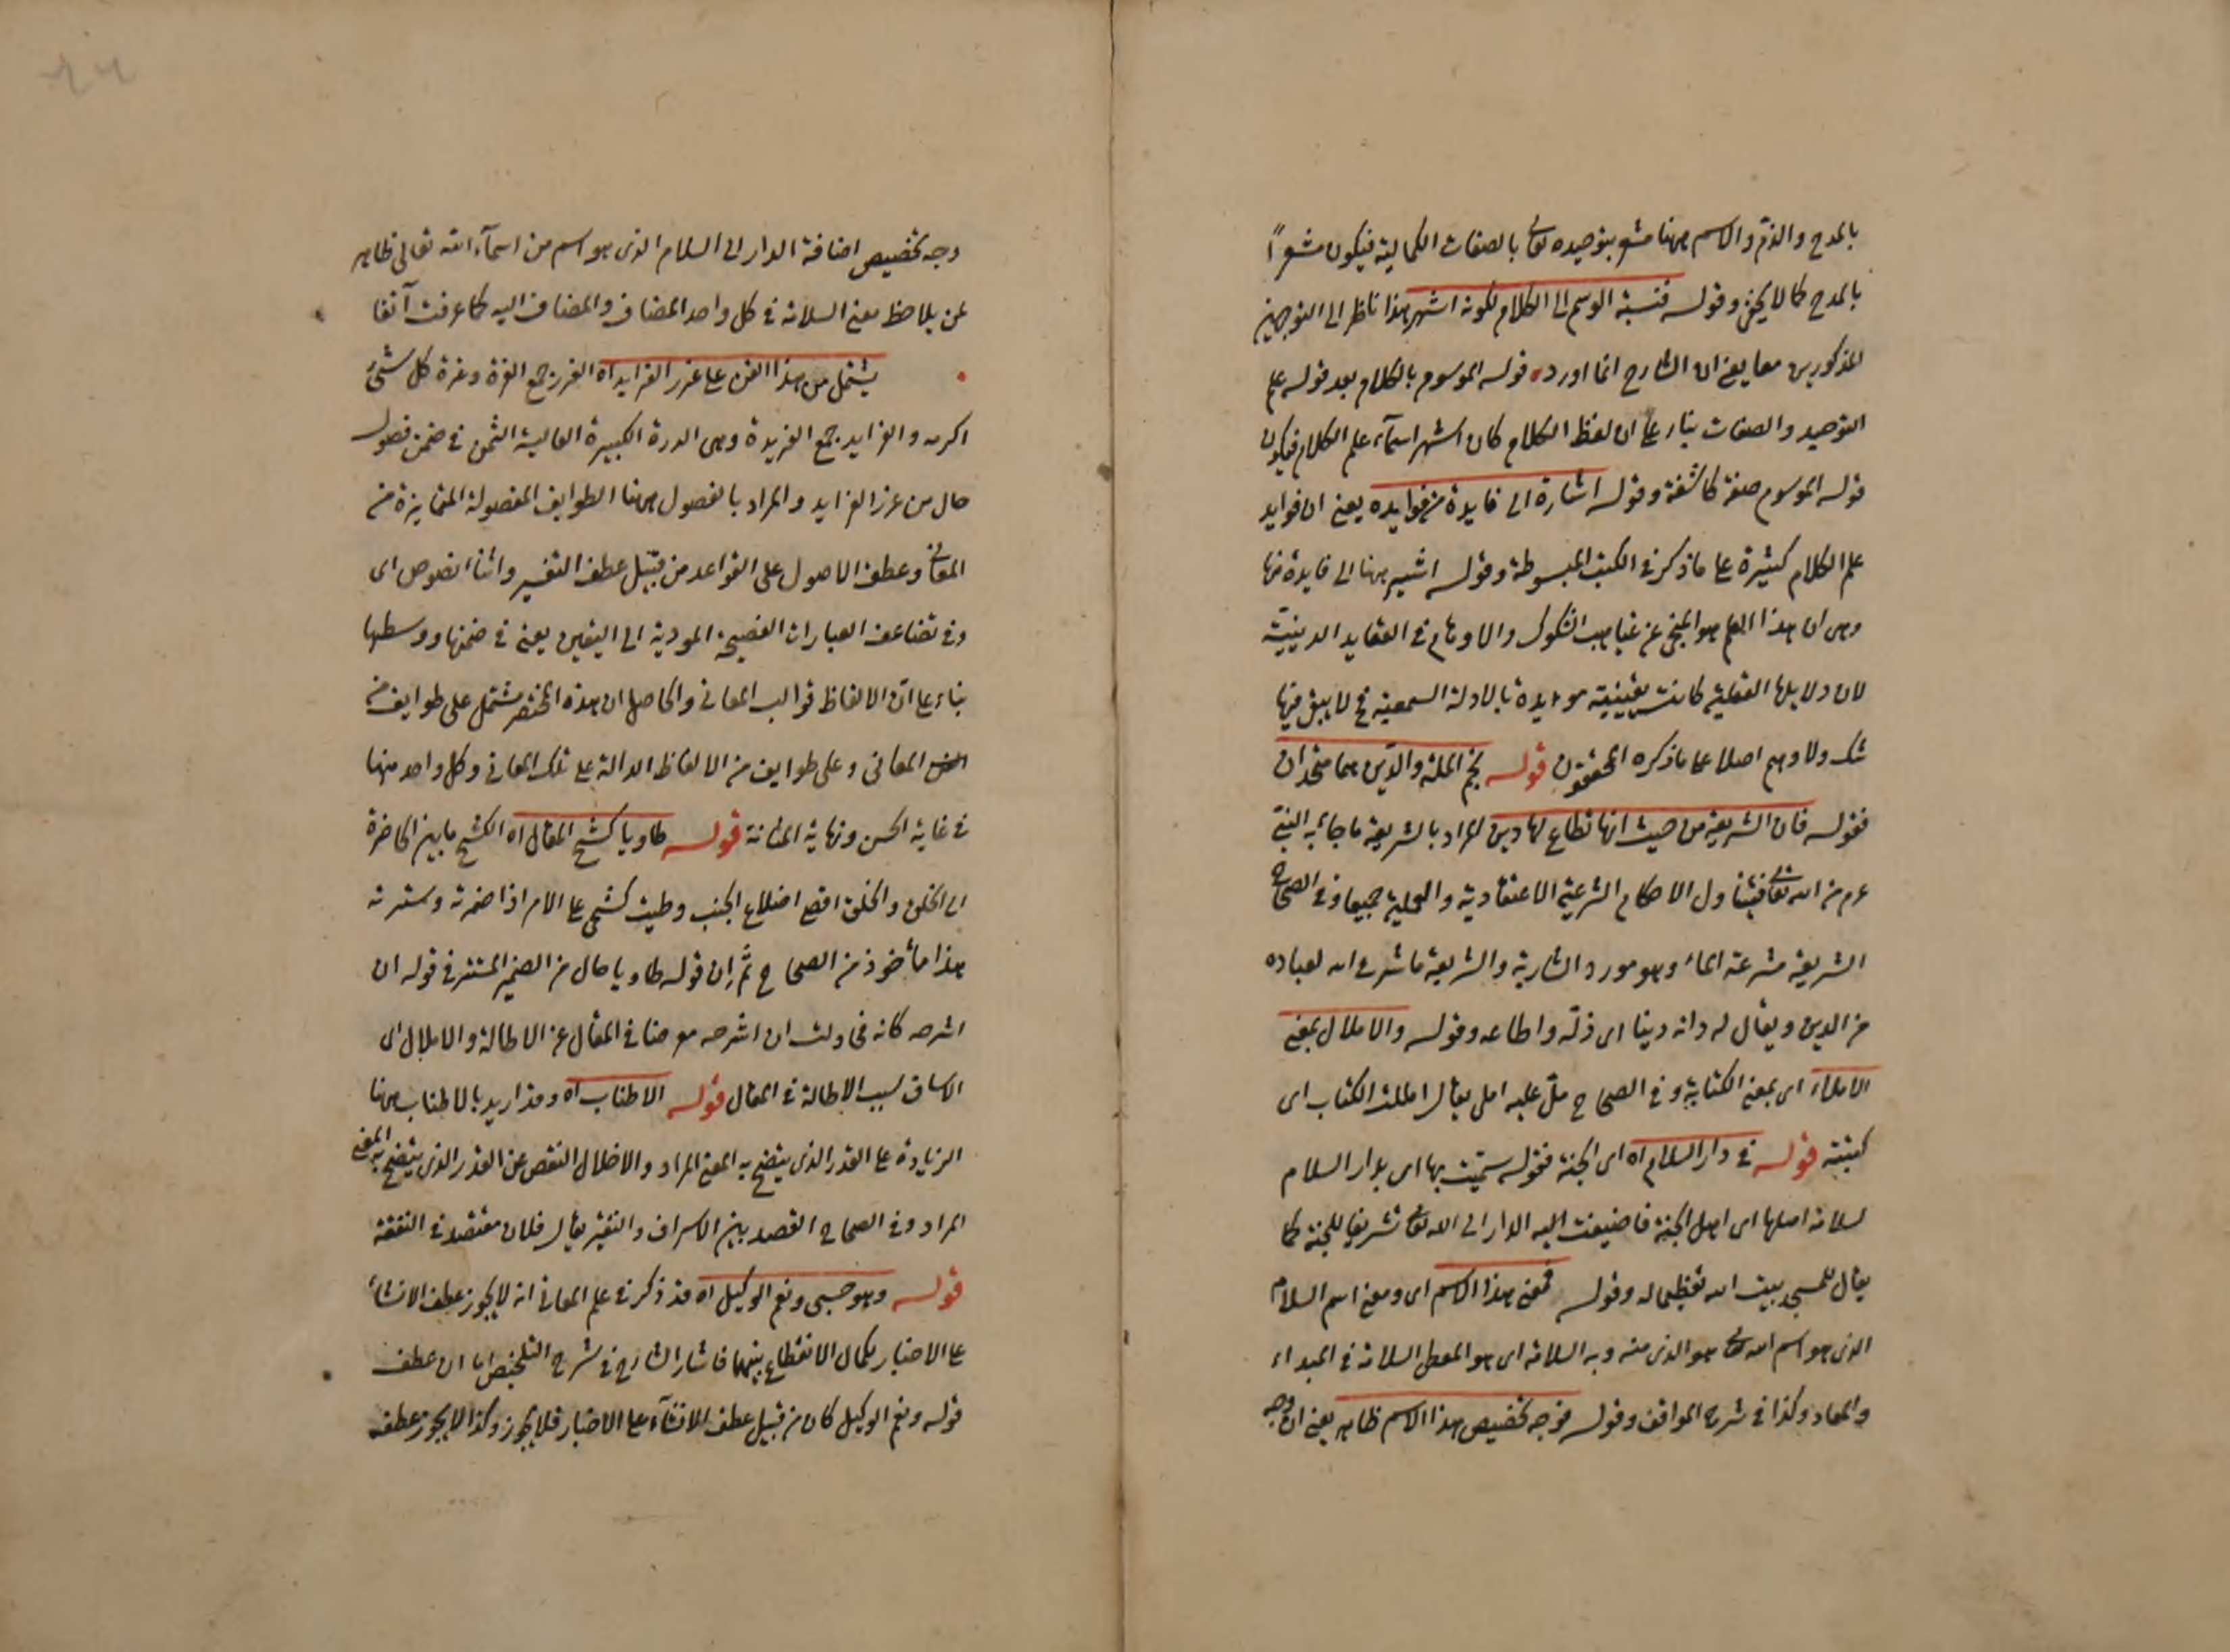 بالمدح والذم والاسم ههنا مشعر بتوحيده تعالى بالصفات الكمالية فيكون مشعرا
بالمدح كما لا يخفى وقوله فنسبة الوسم الى الكلام لكونه اشهر هذا ناظر الى التوجيهين
المذكورين معا يعنى ان الشارح انما اورد قوله الموسوم بالكلام بعد قوله علم
التوحيد والصفات بناء على ان لفظ الكلام كان اشهر اسمآء علم الكلام فيكون
قوله الموسوم صفة كاشفة وقوله اشارة الى فايدة من فوايده يعنى ان فوايد
علم الكلام كثيرة على ما ذكر فى الكتب المبسوطة وقوله اشير ههنا الى فايدة منها
وهى ان هذا العلم هو المنجى عن غياهب الشكوك والاوهام فى العقايد الدينية
لان دلايلها العقلية كانت يقينية مويدة بالادلة السمعية فح لا يبقى فيها
شك ولا وهم اصلا على ما ذكره المحققون قوله نجم الملة والدين هما متحدان
فقوله فان الشريعة من حيث انها تطاع لها دين المراد بالشريعة ما جاء به النبى
عم من الله تعالى فيتناول الاحكام الشرعية الاعتقادية والعملية جميعا وفى الصحاح
الشريعة مشرعة الماء وهو مورد الشاربة والشريعة ما شرع الله لعباده
من الدين ويقال له دانه دينا اى ذلّه واطاعه وقوله والاملال بمعنى
الاملاء اى بمعنى الكتابة وفى الصحاح ملّ عليه امل يقال امللت الكتاب اى
كتبته قوله فى دار السلام اه اى الجنة فقوله سمّيت بها اى بدار السلام
لسلامة اهلها اى اهل الجنة فاضيفت اليه الدار الى الله تعالى تشريفا للجنة كما
يقال للمسجد بيت الله تعظيما له وقوله فمعنى هذا الاسم اى ومعنى اسم السلام
الذى هو اسم الله تعالى هو الذى منه وبه السلامة اى هو المعطى السلامة فى المبداء
والمعاد وكذا فى شرح المواقف وقوله فوجه تخصيص هذا الاسم ظاهر يعنى ان وجه
وجه تخصيص اضافة الدار الى السلام الذى هو اسم من اسمآء الله تعالى ظاهر
لمن يلاحظ معنى السلامة فى كل واحد المضاف والمضاف اليه كما عرفت آنفا
يشتمل من هذا الفن على غرر الفرايد اه الغرر جمع الغرة وغرة كل شئ
اكرمه والفرايد جمع الفريدة وهى الدرة الكبيرة الغالية الثمن فى ضمن فصول
حال من غرر الفرايد والمراد بالفصول ههنا الطوايف المفصولة المتمايزة من
المعانى وعطف الاصول على القواعد من قبيل عطف التفسير واثناء نصوص اى
وفى تضاعف العبارات الفصيحة المودية الى اليقين يعنى فى ضمنها ووسطها
بناء على انّ الالفاظ قوالب المعانى والحاصل ان هذه المختصر مشتمل على طوايف من
المعانى وعلى طوايف من الالفاظ الدالة على تلك المعانى وكل واحد منها
فى غاية الحسن ونهاية المتانة قوله طاويا كشح المقال اه الكشح ما بين الخاصرة
الى الخلف والخلف اقصر اضلاع الجنب وطويت كشحى على الامر اذا ضمرته وسترته
هذا مأخوذ من الصحاح ثمّ ان قوله طاويا حال من الضمير المستتر فى قوله ان
اشرحه كانه محاولت ان اشرحه معرضا فى المقال عن الاطالة والاملال اى
الاساف بسبب الاطالة فى المقال قوله الاطناب اه وقد اريد بالاطناب ههنا
الزيادة على القدر الذى يتضح به المعنى المراد والاخلال النقص عن القدر الذى يتضح به المعنى
المراد وفى الصحاح القصد بين الاسراف والتقتير يقال فلان مقتصد فى النفقة
قوله وهو حسبى ونعم الوكيل اه قد ذكر فى علم المعانى انه لا يجوز عطف الانشاء
على الاخبار بكمال الانقطاع بينهما فاشار الشارح فى شرح التلخيص ان عطف
قوله ونعم الوكيل كان من قبيل عطف الانشآء على الاخبار فلا يجوز وكذا لا يجوز عطفه